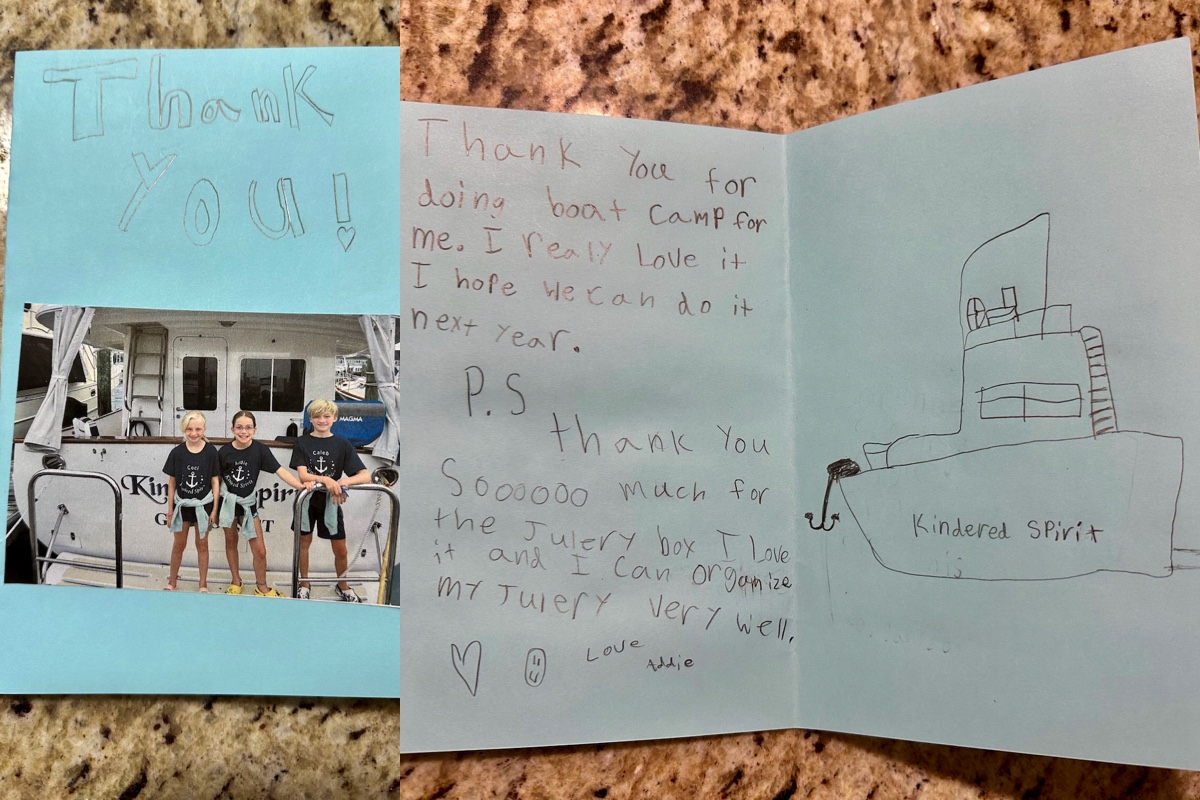 Thank
You!
MAGMA
Ceci
Addie
Caleb
Kindred Spirit
Thank You for
doing boat camp for
me. I realy Love it
I hope we can do it
next year.
P.S
thank You
Soooooo much for
the Julery box I Love
it and I can organize
my Julery very well.
Love
Addie
Kindered Spirit